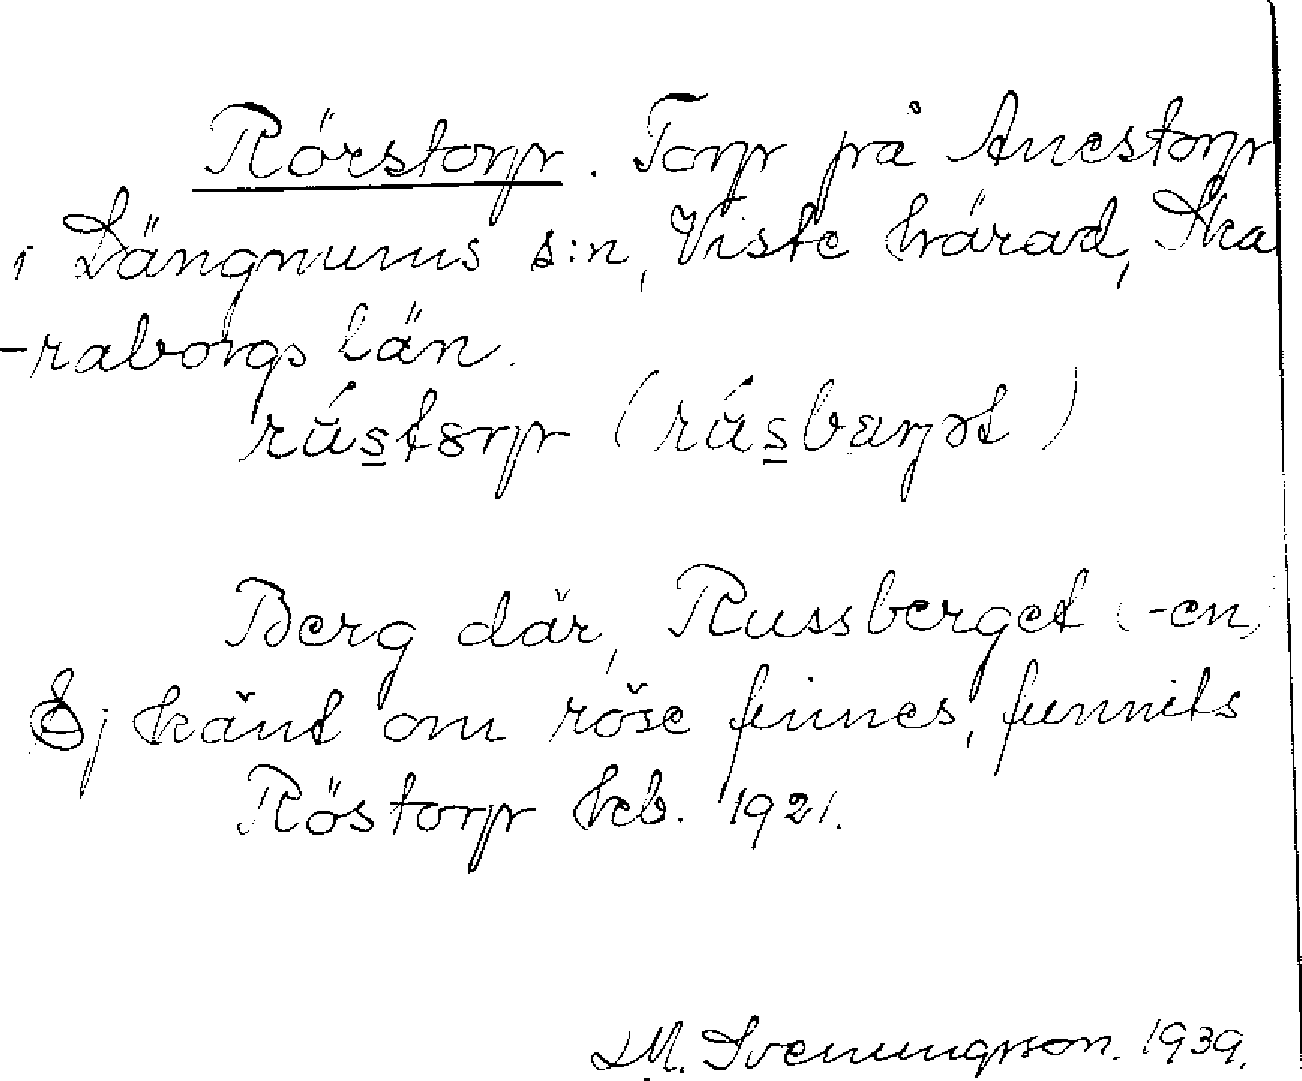 Rörstorp. Torp på Anestorp
i Längnums s:n, Viste härad, Ska
-raborgs län.
rústorp (rúsbærjət)
Berg där, Russberget (-en)
Ej känt om röse finnes, funnits
Röstorp kb. 1921.
M. Svenungsson. 1939.